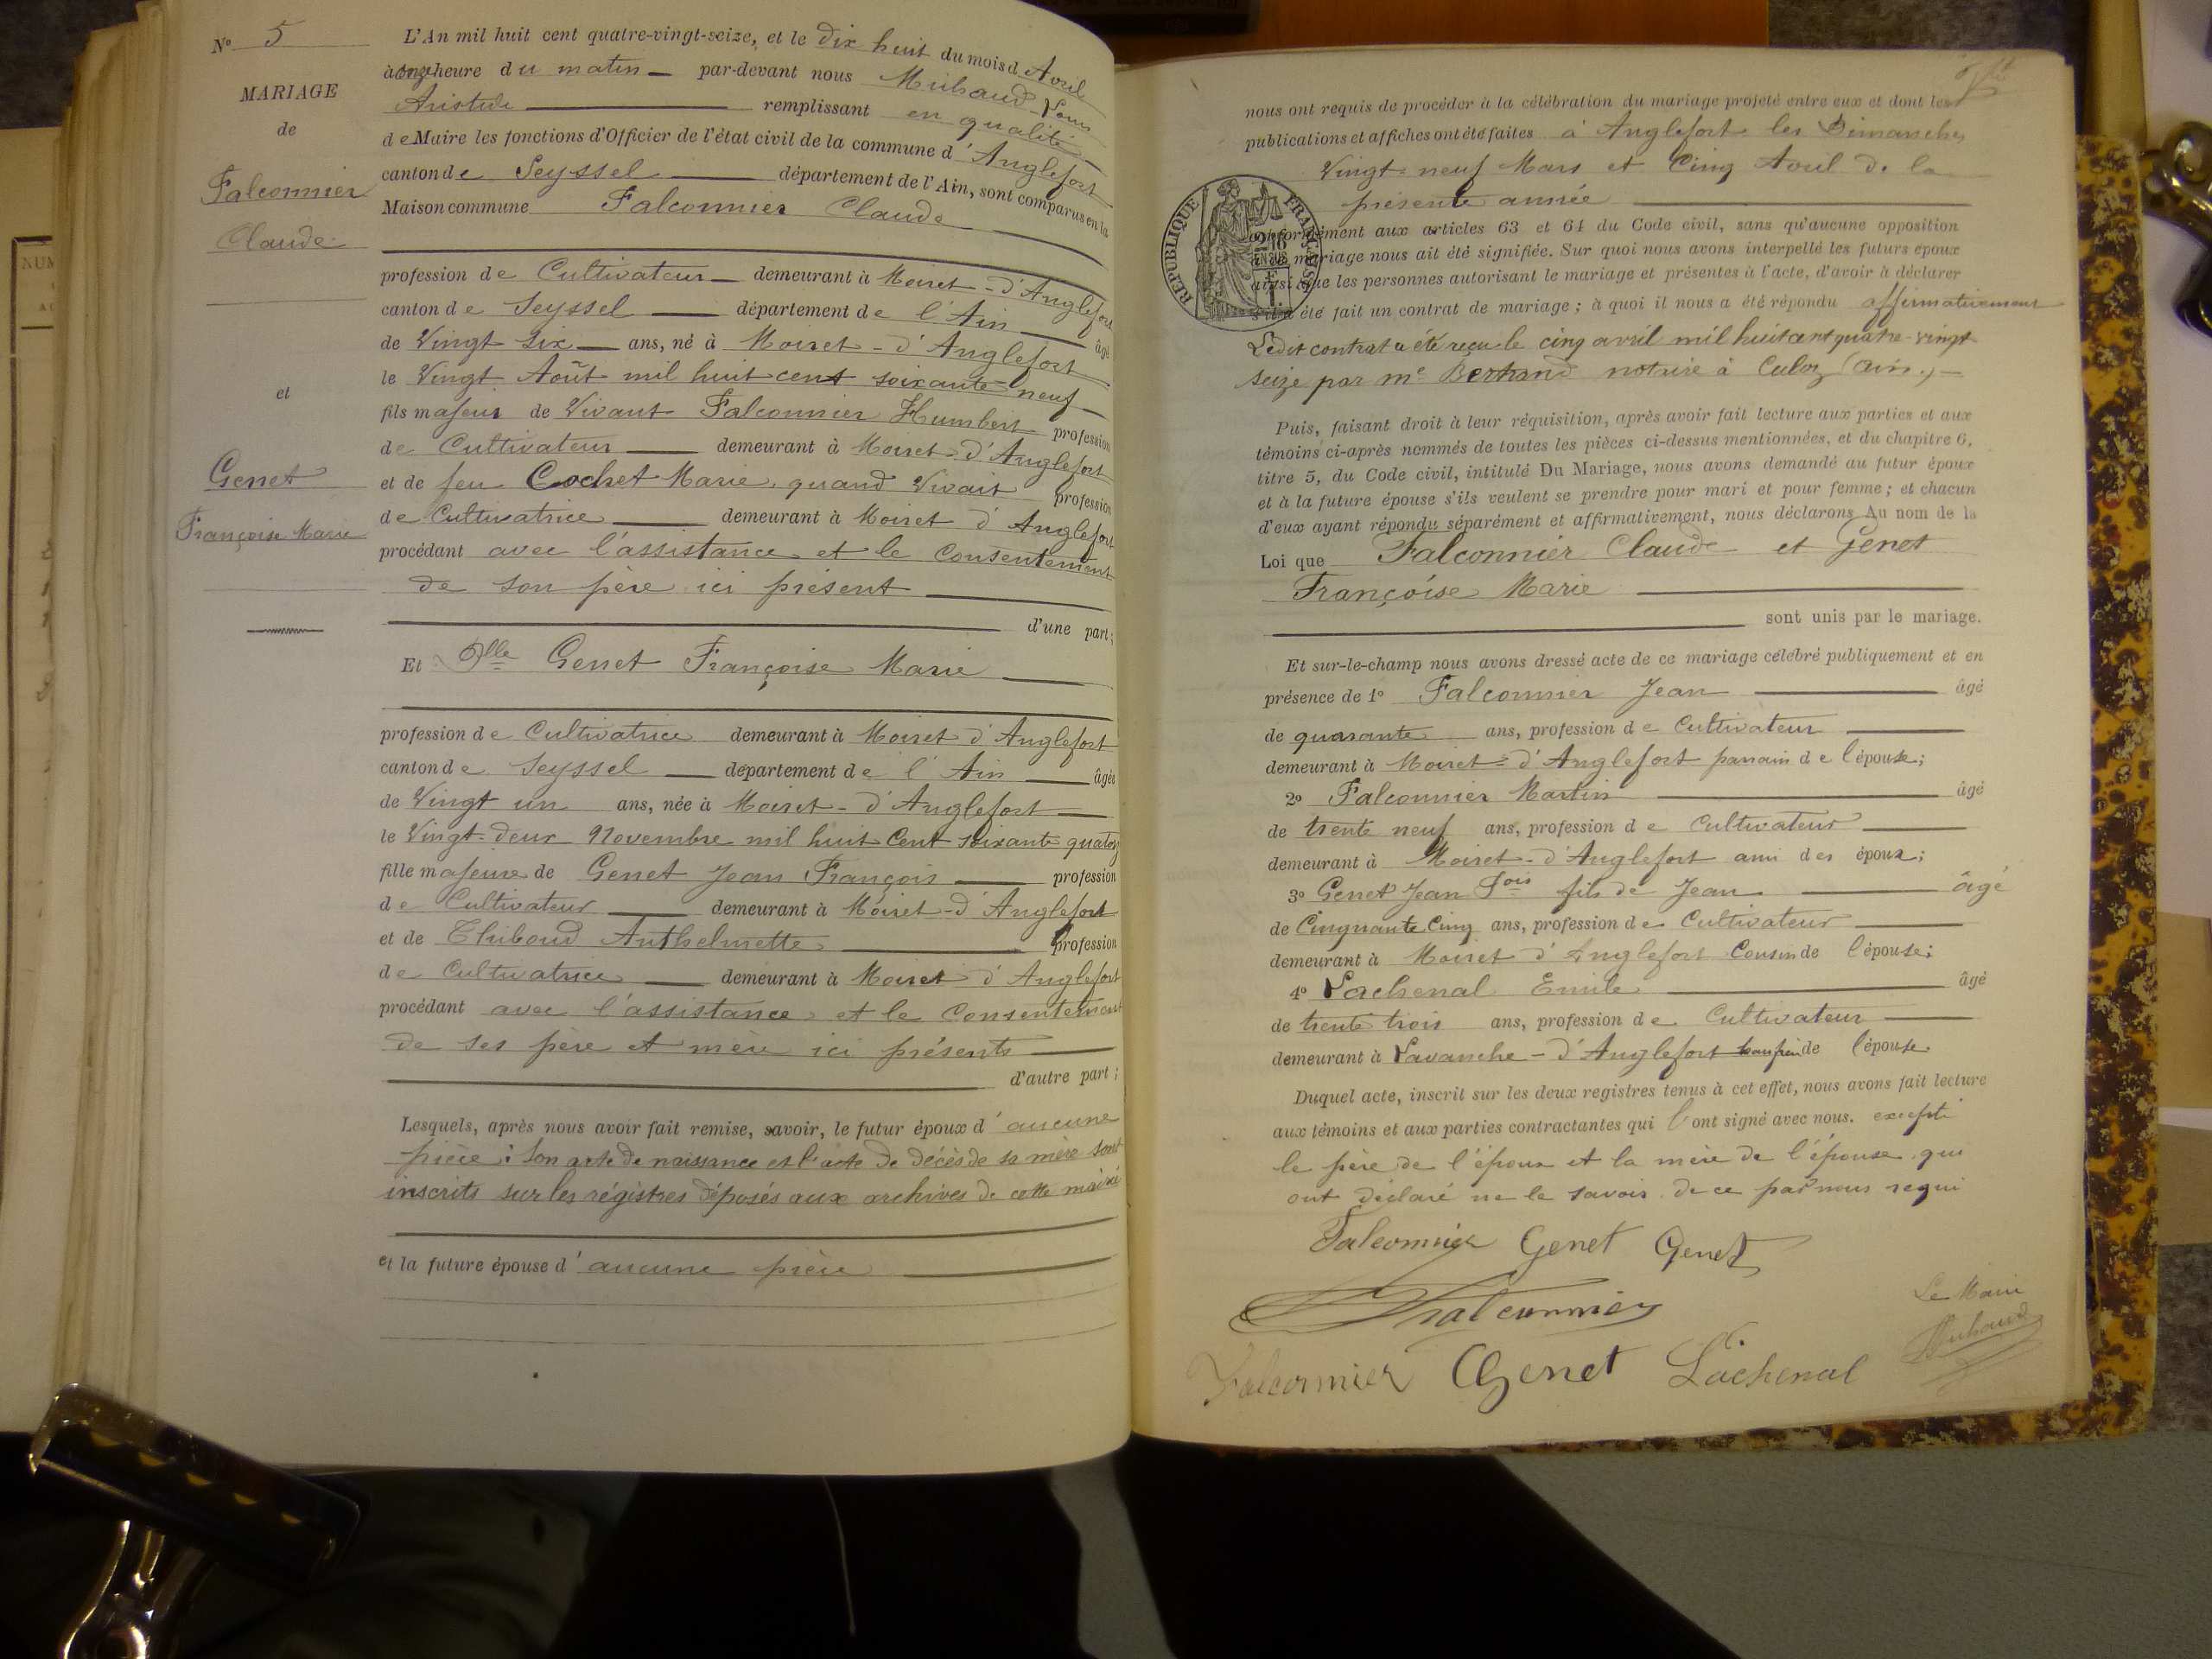 N° 5
MARIAGE
de
Falconnier
Claude
et
Genet
Françoise Marie
L'An mil huit cent quatre-vingt-seize, et le dix huit du mois d'Avril
à onze heure du matin par-devant nous Michaud Louis
Aristide remplissant en qualité
de Maire les fonctions d'Officier de l'état civil de la commune d'Anglefort
canton de Seyssel département de l'Ain, sont comparus en la
Maison commune Falconnier Claude
profession de Cultivateur demeurant à Moiret-d'Anglefort
canton de Seyssel département de l'Ain âgé
de Vingt six ans, né à Moiret-d'Anglefort
le Vingt Août mil huit cent soixante-neuf
fils majeur de Vivant Falconnier Humbert profession
de Cultivateur demeurant à Moiret-d'Anglefort
et de feu Cochet Marie, quand Vivait profession
de Cultivatrice demeurant à Moiret d'Anglefort
procédant avec l'assistance et le Consentement
de son père ici présent
d'une part;
Et Dlle Genet Françoise Marie
profession de Cultivatrice demeurant à Moiret d'Anglefort
canton de Seyssel département de l'Ain âgée
de Vingt un ans, née à Moiret-d'Anglefort
le Vingt-deux Novembre mil huit Cent soixante quatorz
fille majeure de Genet Jean François profession
de Cultivateur demeurant à Moiret-d'Anglefort
et de Thiboud Anthelmette profession
de Cultivatrice demeurant à Moiret d'Anglefort
procédant avec l'assistance et le Consentement
de ses père et mère ici présents
d'autre part;
Lesquels, après nous avoir fait remise, savoir, le futur époux d'aucune
pièce: Son acte de naissance et l'acte de décès de sa mère sont
inscrits sur les régistres déposés aux archives de cette mairie
et la future épouse d'aucune pièce
nous ont requis de procéder à la célébration du mariage projeté entre eux et dont les
publications et affiches ont été faites à Anglefort les Dimanches
Vingt-neuf Mars et Cinq Avril de la
présente année
REPUBLIQUE FRANÇAISE
conformément aux articles 63 et 64 du Code civil, sans qu'aucune opposition
à ce mariage nous ait été signifiée. Sur quoi nous avons interpellé les futurs époux
ainsi que les personnes autorisant le mariage et présentes à l'acte, d'avoir à déclarer
s'il a été fait un contrat de mariage; à quoi il nous a été répondu affirmativement
Ledit contrat a été reçu le cinq avril mil huit cent quatre-vingt
seize par me Bertrand notaire à Culoz (Ain).
Puis, faisant droit à leur réquisition, après avoir fait lecture aux parties et aux
témoins ci-après nommés de toutes les pièces ci-dessus mentionnées, et du chapitre 6,
titre 5, du Code civil, intitulé Du Mariage, nous avons demandé au futur époux
et à la future épouse s'ils veulent se prendre pour mari et pour femme; et chacun
d'eux ayant répondu séparément et affirmativement, nous déclarons Au nom de la
Loi que Falconnier Claude et Genet
Françoise Marie
sont unis par le mariage.
Et sur-le-champ nous avons dressé acte de ce mariage célébré publiquement et en
présence de 1° Falconnier Jean âgé
de quarante ans, profession de Cultivateur
demeurant à Moiret-d'Anglefort parrain de l'épouse;
2° Falconnier Martin âgé
de trente neuf ans, profession de Cultivateur
demeurant à Moiret-d'Anglefort ami des époux;
3° Genet Jean Fois fils de Jean âgé
de Cinquante Cinq ans, profession de Cultivateur
demeurant à Moiret d'Anglefort Cousin de l'épouse;
4° Lachenal Emile âgé
de trente trois ans, profession de Cultivateur
demeurant à Lavanche-d'Anglefort de l'épouse.
Duquel acte, inscrit sur les deux registres tenus à cet effet, nous avons fait lecture
aux témoins et aux parties contractantes qui l'ont signé avec nous. excepté
le père de l'époux et la mère de l'épouse qui
ont déclaré ne le savoir de ce par nous requi
Falconnier Genet Genet
Falconnier
Le Maire
Michaud
Falconnier Genet Lachenal